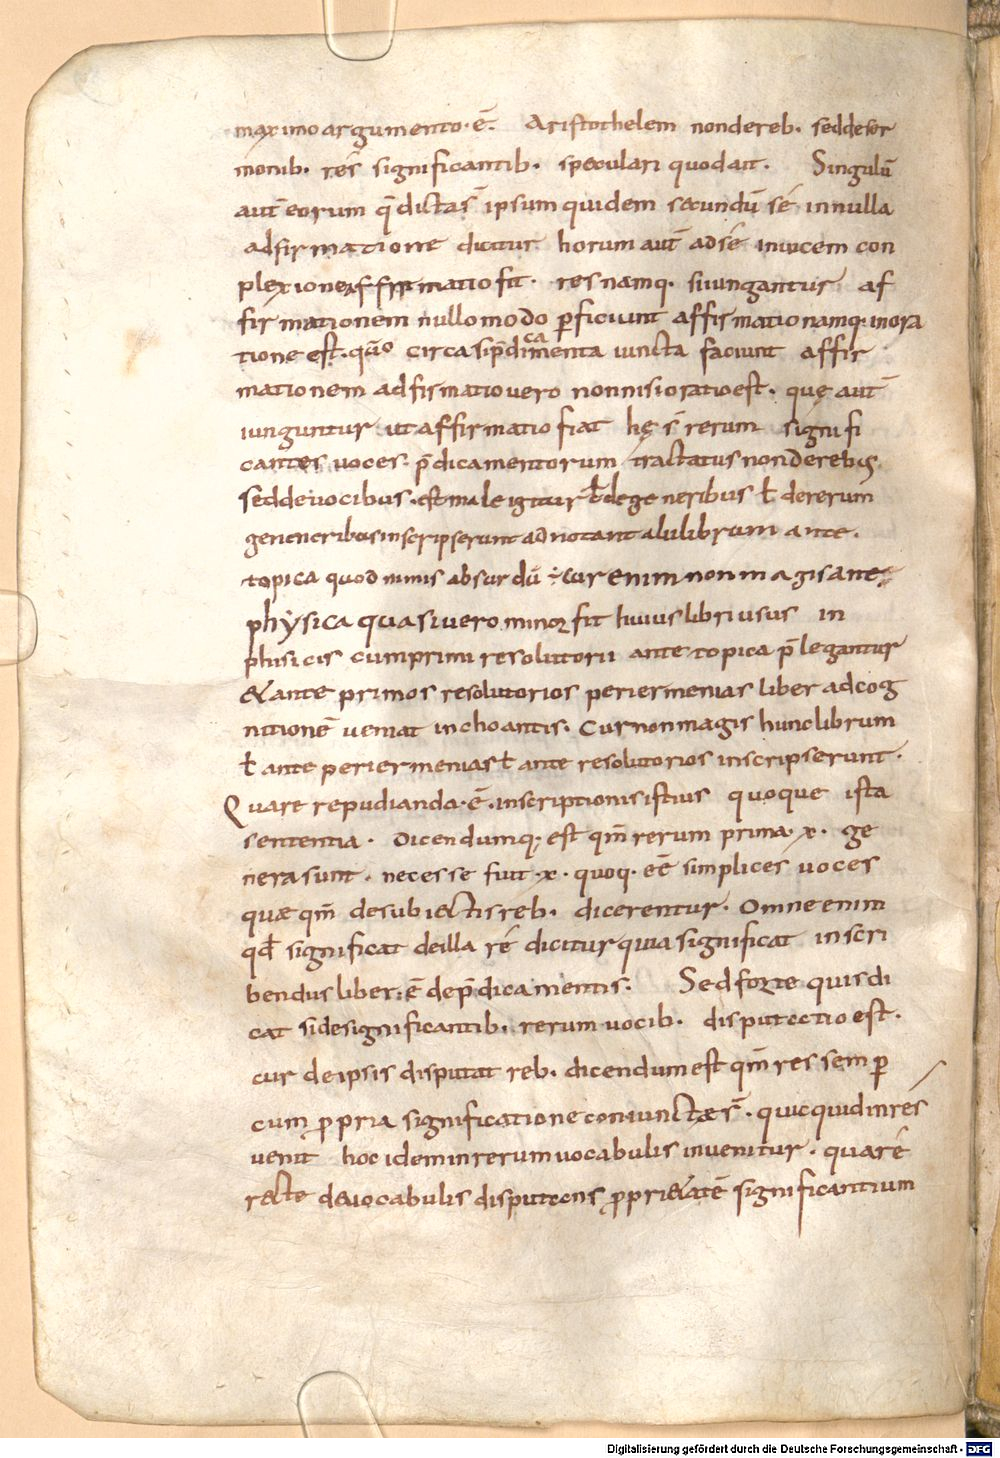 maximo argumento · ē. Aristothelem non dereb· sed deser
monib· rés significantib· speculari quod ait. Singulū
aut̄ eorum q̄ dicta s̄ ipsum quidem secundū sé innulla
adfirmatione dicitur horum aut̄ ad sé inuicem con
plexione affirmatio fit · res namq· si iungantur af
firmationem nullo modo ꝑficiunt affirmatio namq· in ora
tione est · quō circa si p̄dicamenta iuncta faciunt affir
mationem adfirmatio uero non nisi oratio est · quę aut̄
iunguntur ut affirmatio fiat hę s̄ rerum signifi
cantes uoces · p̄dicamentorum tractatus non de rebus
sed de uocibus · est male igitur ł de generibus ł de rerum
gen eneribus inscripserunt adnotant alii librum ante ·
topica quod nimis absurdū ÷ cur enim non magis ante
physica quasi uero minor fit huius libri usus in
phisicis cum primi resolutorii ante topica p̄legantur
& ante primos resolutorios periermenias liber ad cog
nitionē ueniat inchoantis · Cur non magis hunc librum
ł ante periermenias ł ante resolutorios inscripserunt ·
Quare repudianda · ē · inscriptionis istius quoque ista
sententia · Dicendumq; est qm̄ rerum prima · x · ge
nera sunt · necesse fuit · x · quoq· eē simplices uoces
quæ qm̄ de subiectis reb· dicerentur · Omne enim
qđ significat de illa ré dicitur quia significat inscri
bendus liber : ē de p̄dicamentis : Sed forte quis di
cat si de significantib· rerum uocib· disputatio est ·
cur de ipsis disputat reb· dicendum est qm̄ res semꝑ
cum ꝓpria significatione coniunctæ s̄ · quicquid in rés
uenit hoc idem in rerum uocabulis inuenitur · quaré
recte de uocabulis disputans ꝓpri&atē significantium
Digitalisierung gefördert durch die Deutsche Forschungsgemeinschaft - DFG